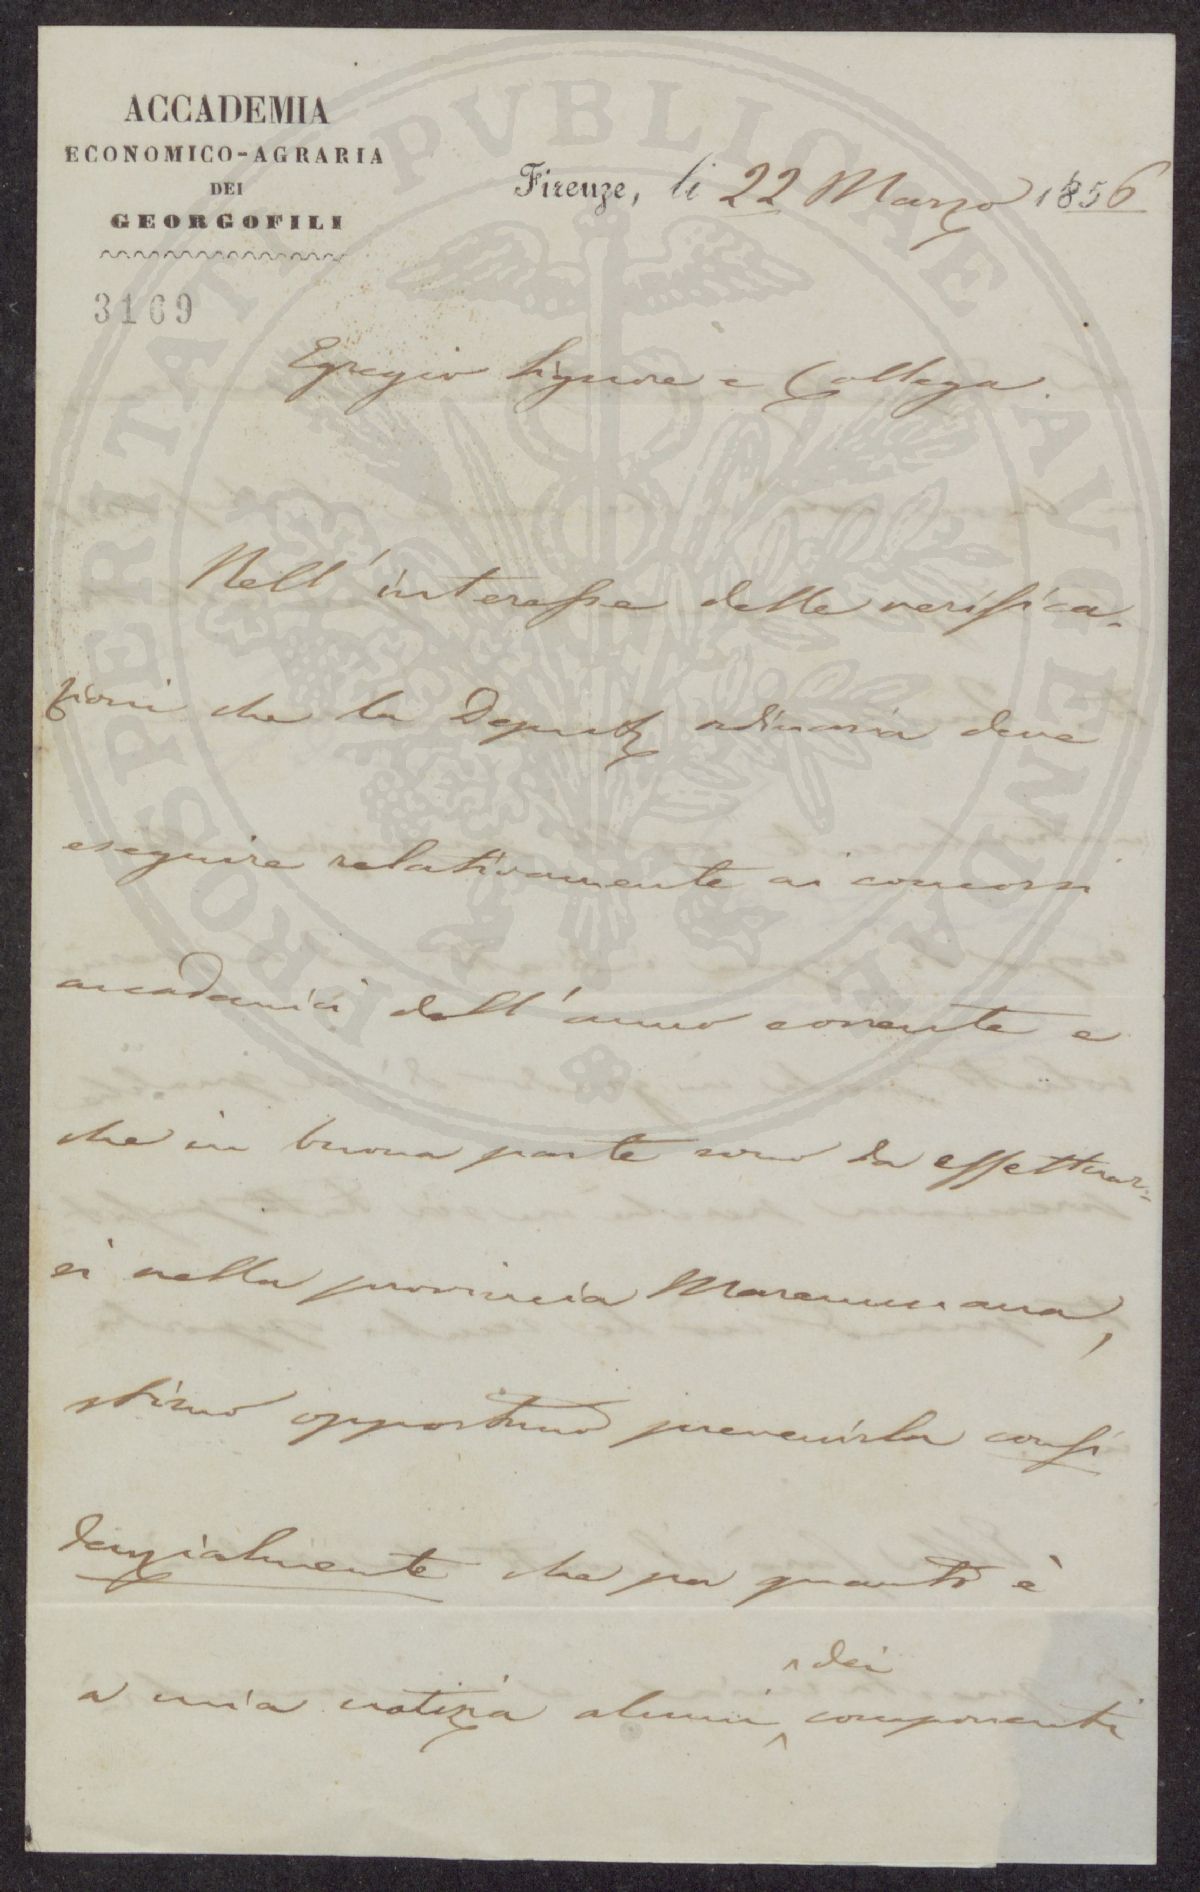 ACCADEMIA
ECONOMICO-AGRARIA
DEI
GEORGOFILI
Firenze, li 22 Marzo 1856
3169
Egregio Signore e Collega
Nell' interesse delle verifica-
zioni che la Deputz ordinaria deve
eseguire relativamente ai concorsi
accademici dell' anno corrente e
che in buona parte sono da effettuar-
si nella provincia Maremmana,
stimo opportuno prevenirla confi
denzialmente che per quanto è
a mia notizia alcuni dei componenti
PROSPERITATI PVBLICAE AVGENDAE